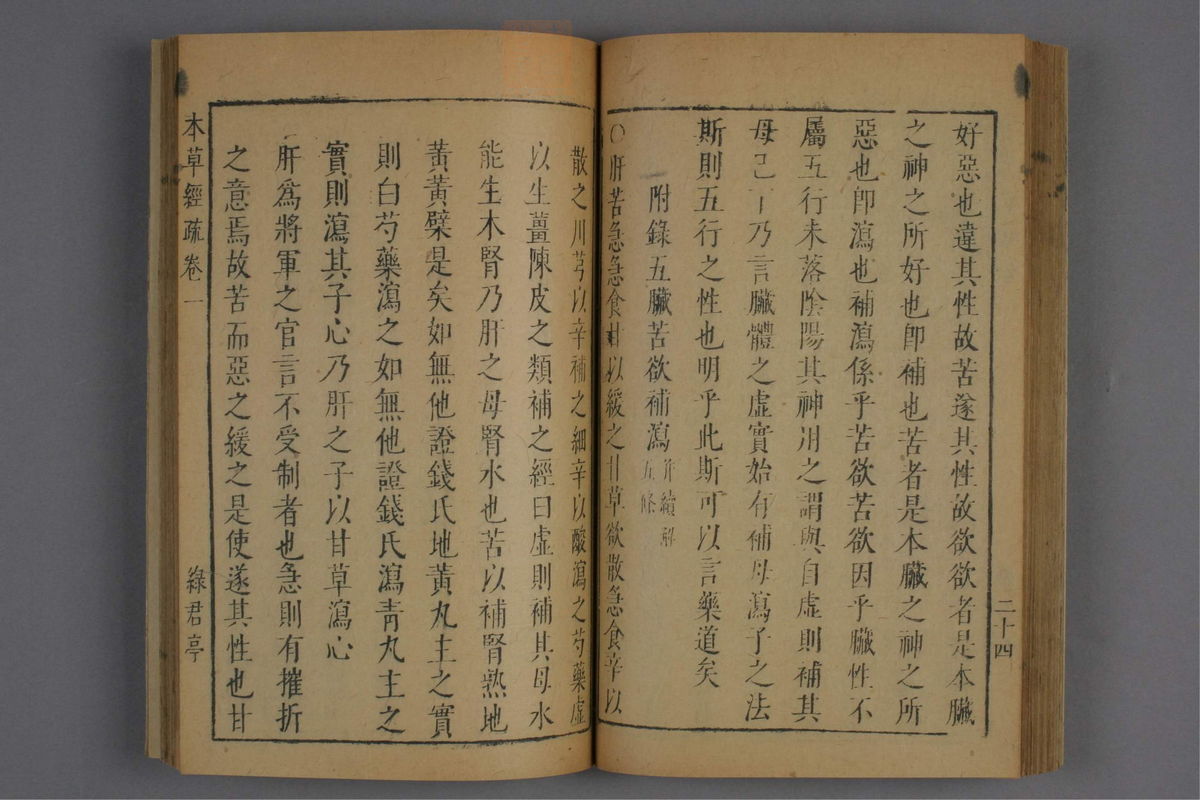 二十四
好惡也違其性故苦遂其性故欲欲者是本臟
之神之所好也卽補也苦者是本臟之神之所
惡也卽瀉也補瀉係乎苦欲苦欲因乎臟性不
屬五行未落陰陽其神用之謂與自虛則補其
母已下乃言臟體之虛實始有補母瀉子之法
斯則五行之性也明乎此斯可以言藥道矣
附錄五臟苦欲補瀉
并續解
五條
○肝苦急急食甘以緩之甘草欲散急食辛以
散之川芎以辛補之細辛以酸瀉之芍藥虛
以生薑陳皮之類補之經曰虛則補其母水
能生木腎乃肝之母腎水也苦以補腎熟地
黃黃檗是矣如無他證錢氏地黃丸主之實
則白芍藥瀉之如無他證錢氏瀉青丸主之
實則瀉其子心乃肝之子以甘草瀉心
肝爲將軍之官言不受制者也急則有摧折
之意焉故苦而惡之緩之是使遂其性也甘
本草經疏卷一
綠君亭